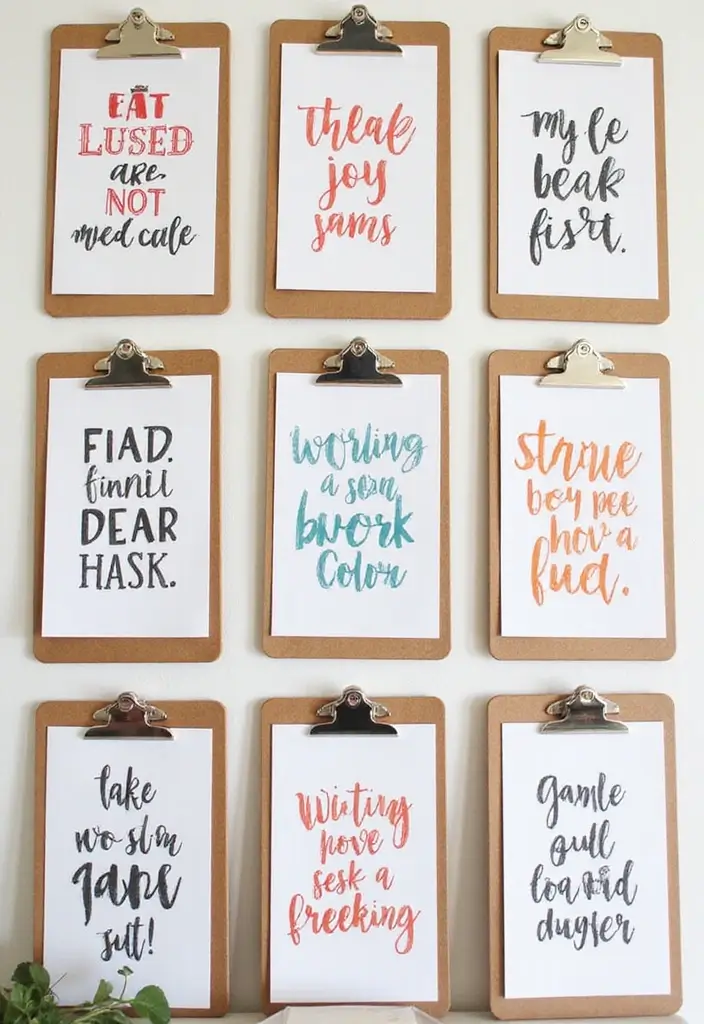 EAT
LUSED
are
NOT
mved cale
Theak
joy
sams
my le
beak
fisrt.
FIAD.
finnil
DEAR
HASK.
worling
a sem
bwork
Color
strnue
boy pee
hov a
fud.
take
wo stm
jape
sut!
Witing
pove
sesk a
freeking
gamle
gull
dugfer